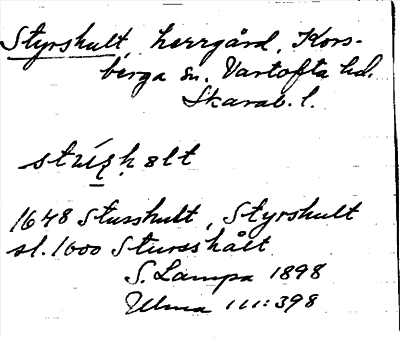 Styrshult, herrgård, Kors-
berga sn. Vartofta hd.
Skarab. l.
1648 Stusshult, Styrshult
sl. 1600 Stursshålt
S. Lampa 1898
Ulma 111:398